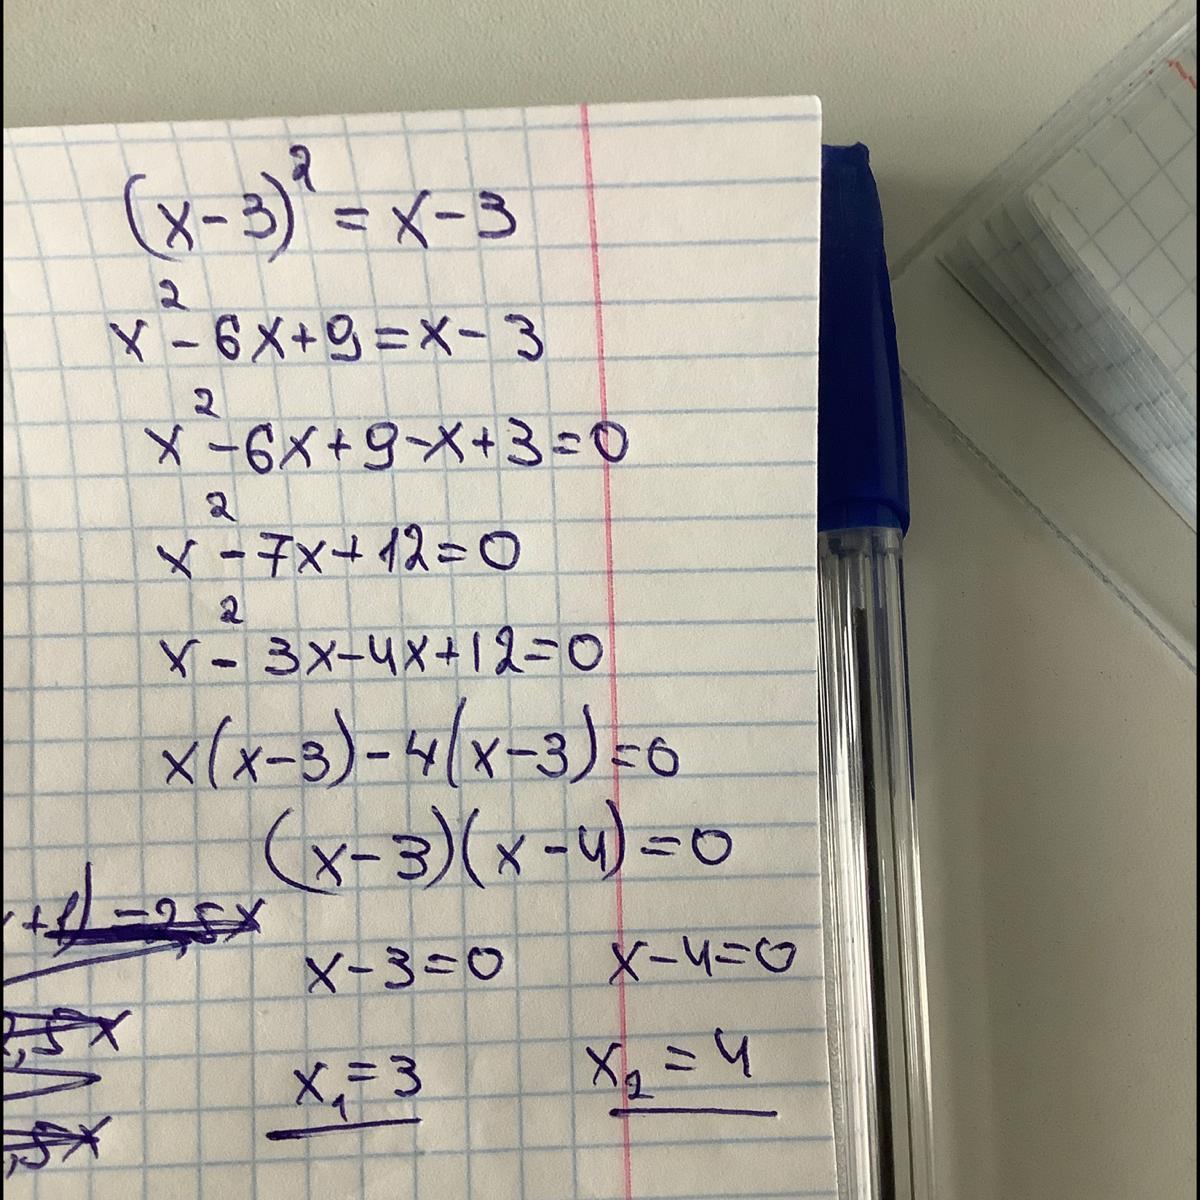 (x-3)² = x-3
x²-6x+9=x-3
x²-6x+9-x+3=0
x²-7x+12=0
x²-3x-4x+12=0
x(x-3)-4(x-3)=0
(x-3)(x-4)=0
+1)-2,5x
x-3=0 x-4=0
,5x
x₁=3 x₂=4
,5x